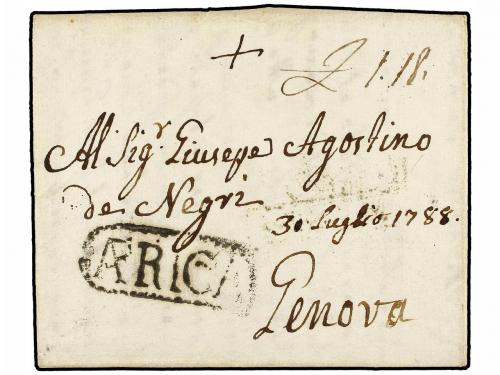 +
1.18.
Al Sigʳ Giusepe Agostino
de Negri
30 Luglio 1788.
ÆRICA
Genova